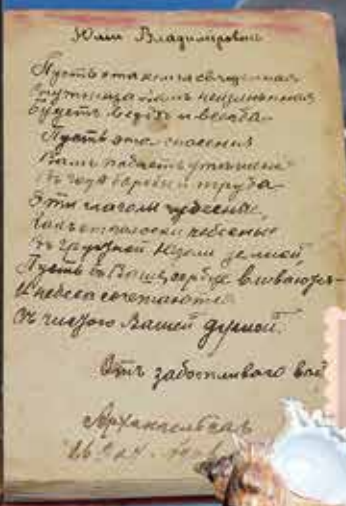 Юлiи Владимiровнѣ
Пусть эта книга священная
Спутница Вамъ неизмѣнная
Будетъ вездѣ и всегда
Пусть эта спасенiя
Вамъ подастъ утѣшенiе
Въ года борьбы и труда
Эти глаголы чудесные,
Какъ отголоски небесные
Въ грустной юдоли земной,
Пусть въ Ваше сердце вливаются
И небеса сочетаются
Съ чистою Вашей душой.
Отъ заботливаго
Архангельскъ